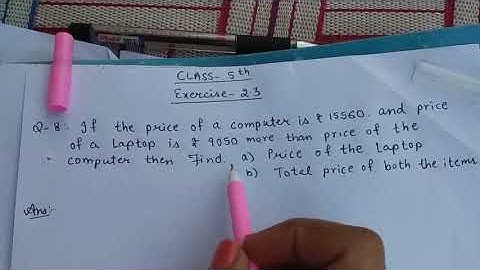 CLASS- 5th
Exercise- 2.3
Q-8. If the price of a computer is ₹ 15560. and price
of a Laptop is ₹ 9050 more than price of the
computer then find. a) Price of the Laptop
b) Total price of both the items
Ans:-